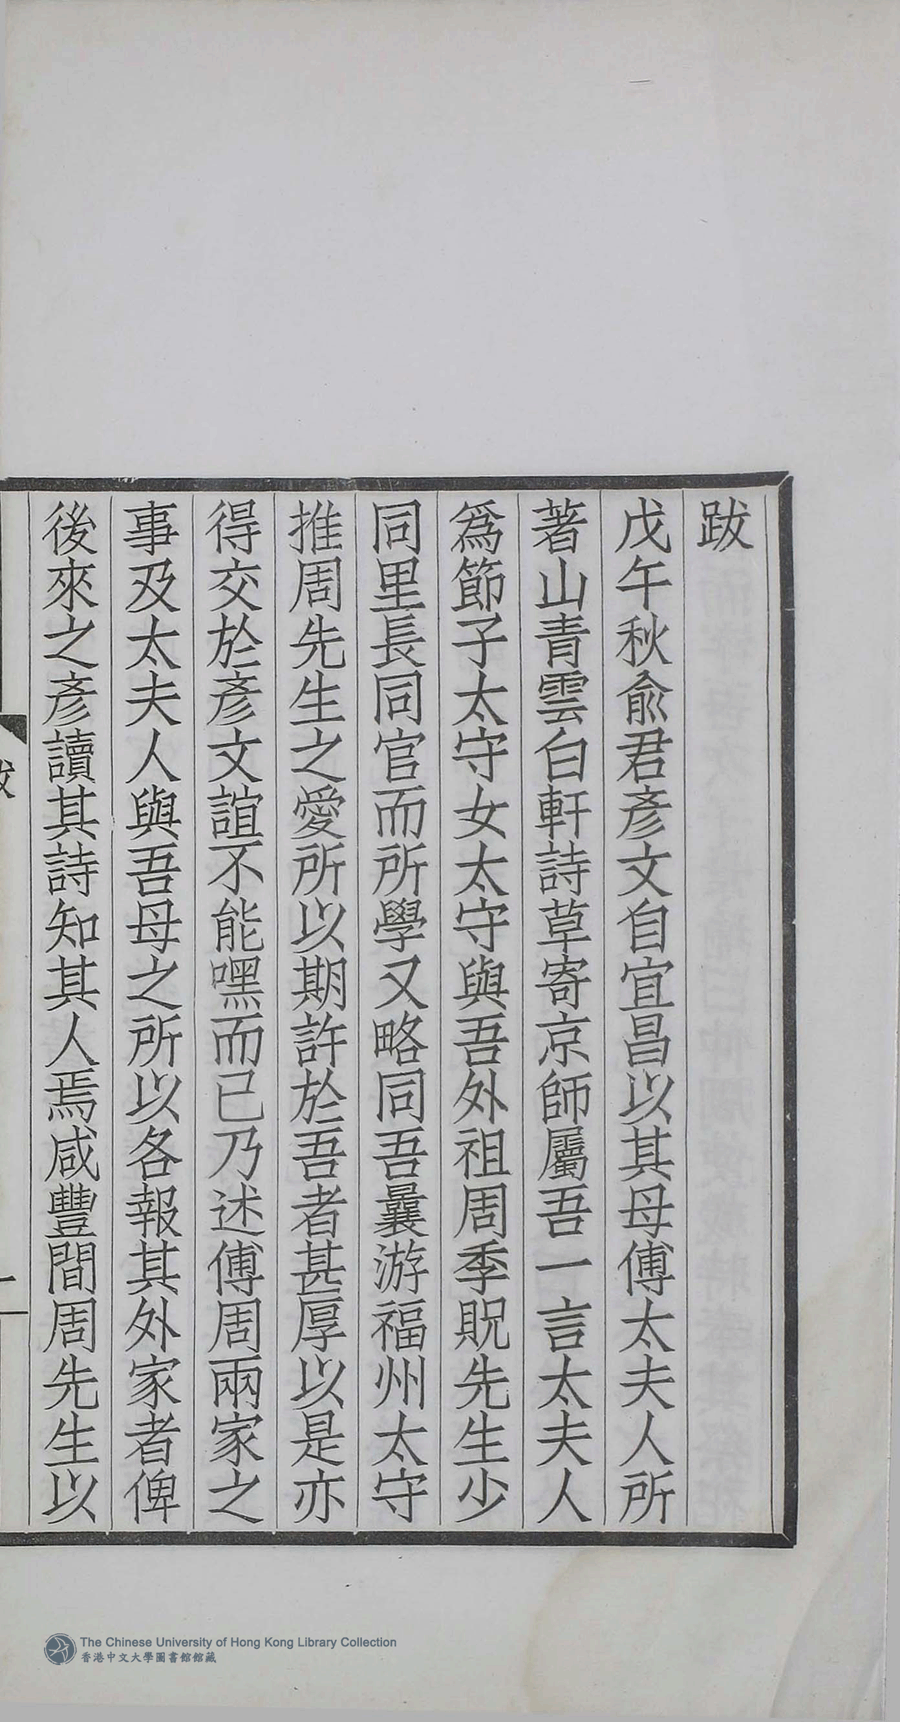 跋
戊午秋兪君彥文自宜昌以其母傅太夫人所
著山青雲白軒詩草寄京師屬吾一言太夫人
爲節子太守女太守與吾外祖周季貺先生少
同里長同官而所學又略同吾曩游福州太守
推周先生之愛所以期許於吾者甚厚以是亦
得交於彥文誼不能嘿而已乃述傅周兩家之
事及太夫人與吾母之所以各報其外家者俾
後來之彥讀其詩知其人焉咸豐間周先生以
The Chinese University of Hong Kong Library Collection
香港中文大學圖書館館藏